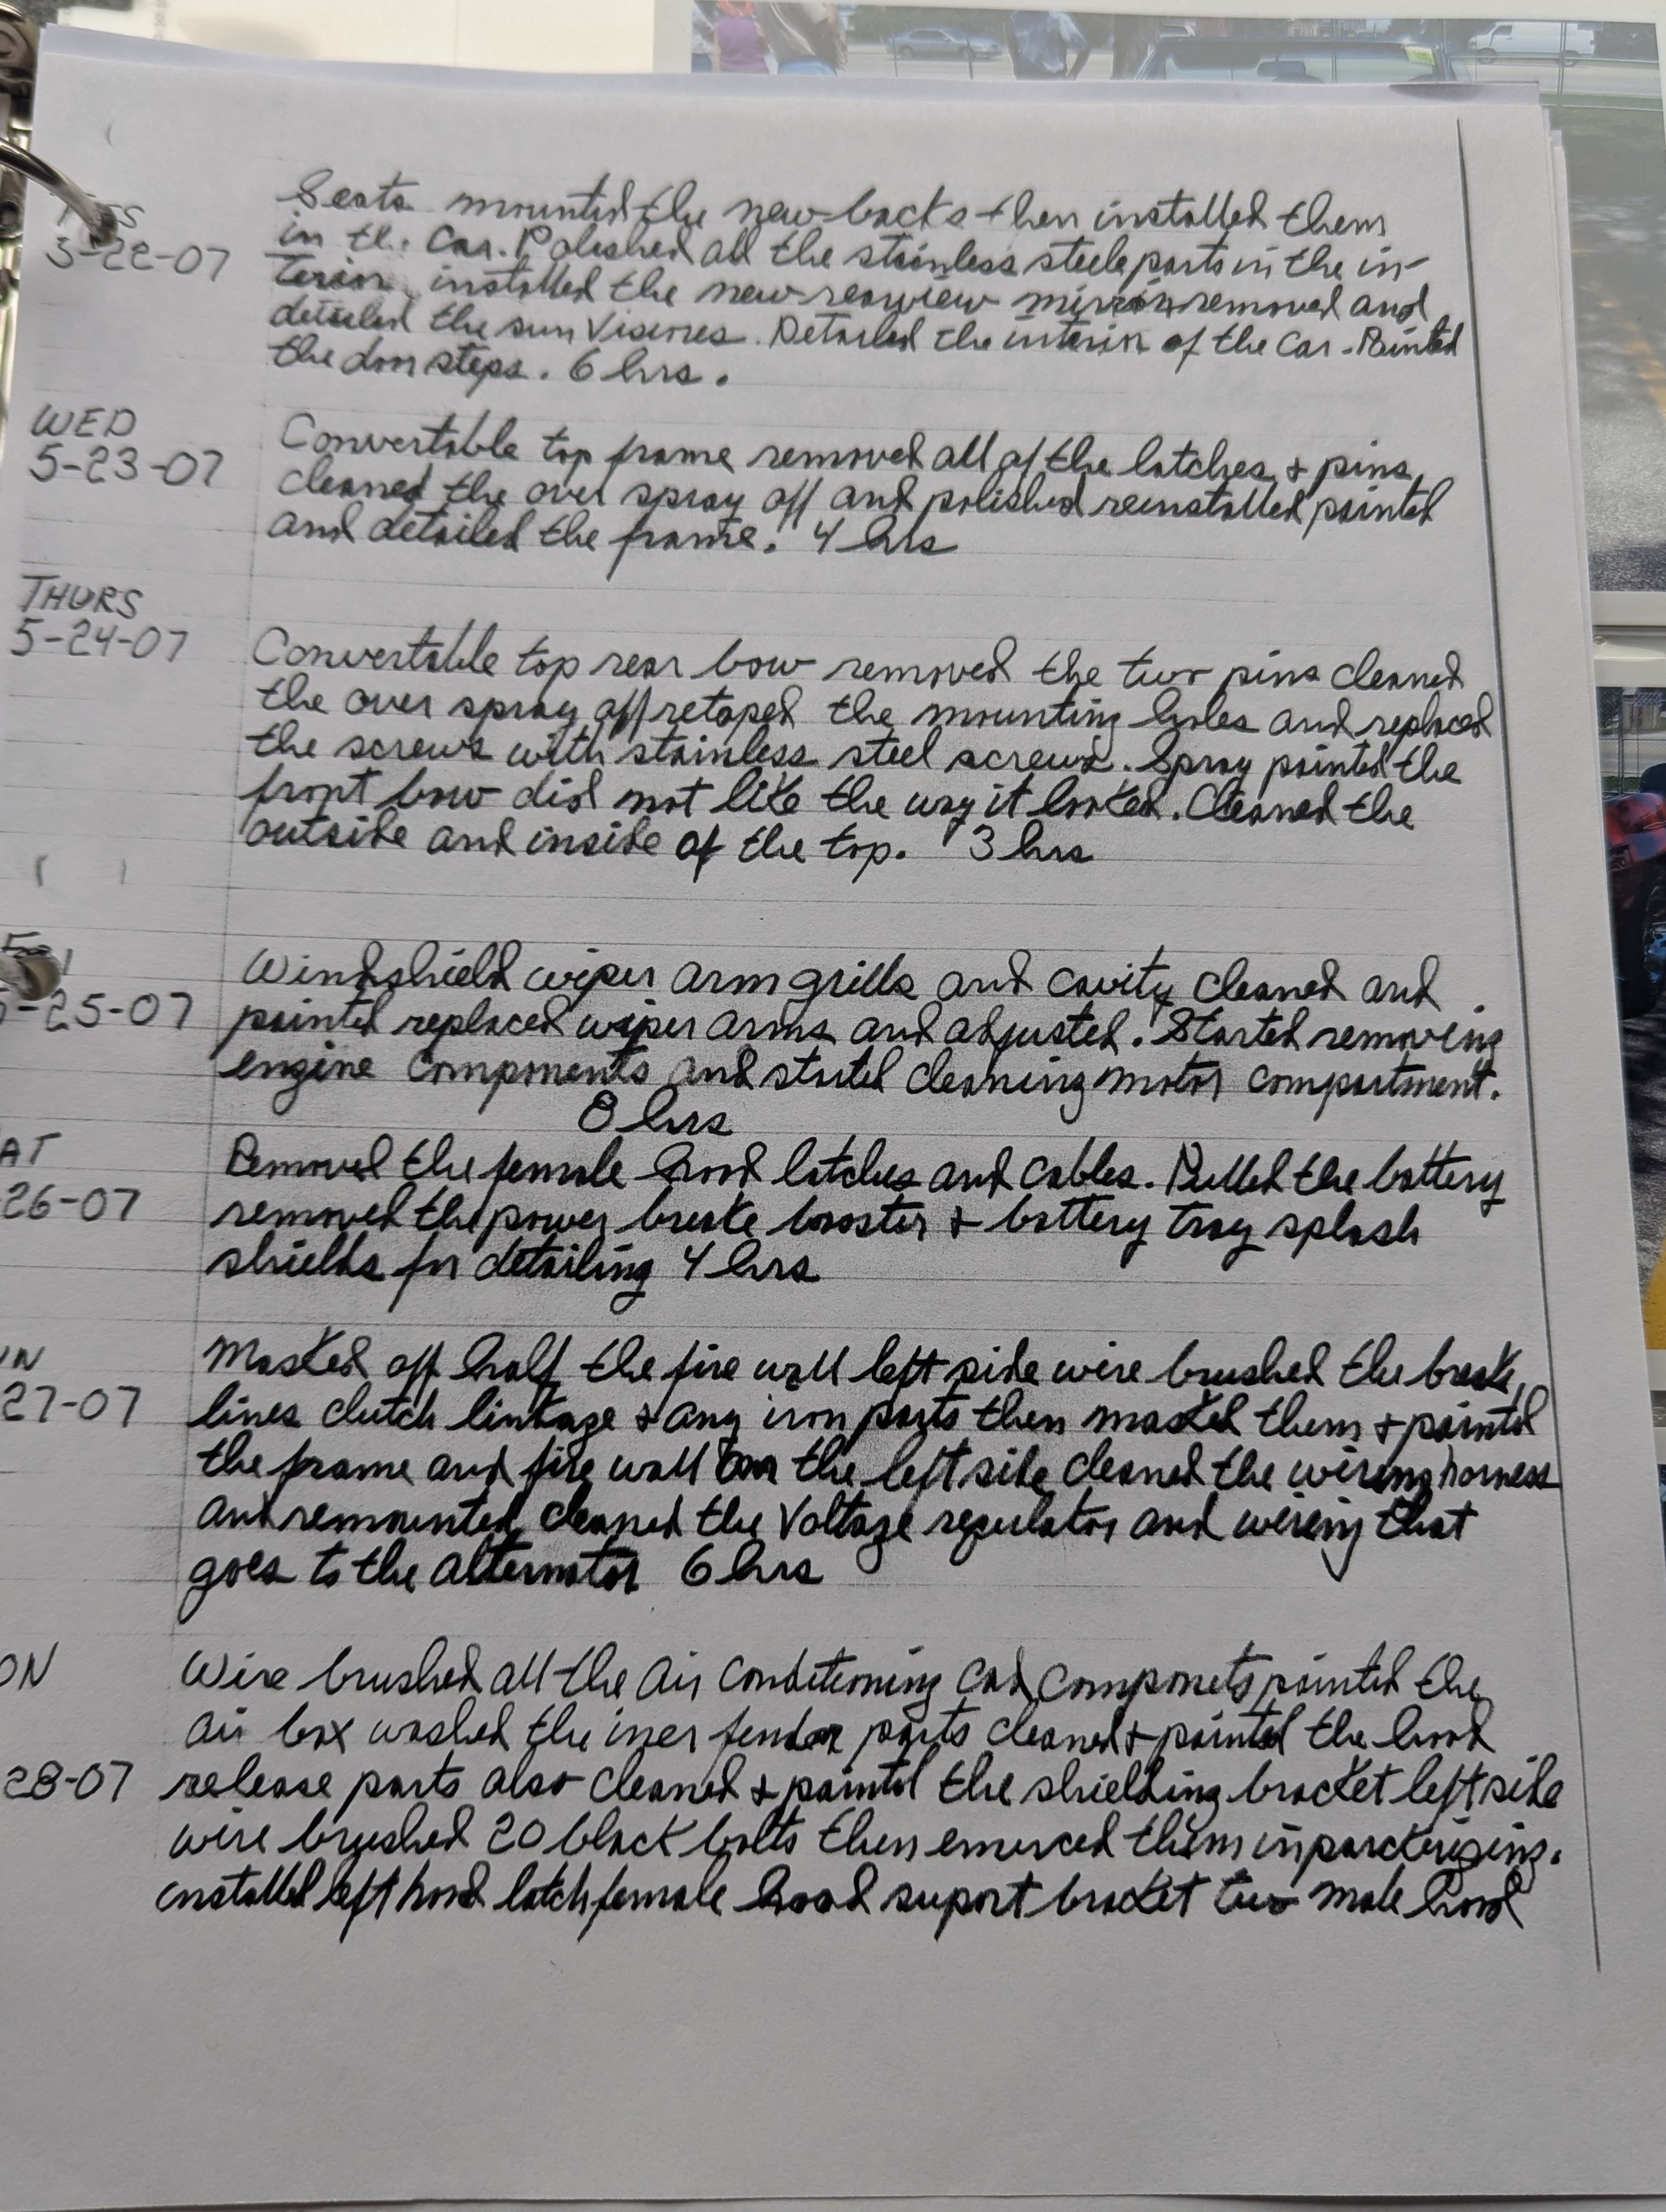 Seats mounted the new backs then installed them
5-22-07
in the Car. Polished all the stainless steele parts in the in-
terior, installed the new rearview mirror removed and
detailed the sun Visiores. Detailed the interior of the Car. Painted
the door steps. 6 hrs.
WED
5-23-07
Convertable top frame removed all of the latches & pins
cleaned the over spray off and polished reinstalled painted
and detailed the frame. 4 hrs
THURS
5-24-07
Convertable top rear bow removed the two pins cleaned
the over spray off retaped the mounting holes and replaced
the screws with stainless steel screws. Spray painted the
front bow did not like the way it looked. Cleaned the
outside and inside of the top. 3 hrs
-25-07
Windshield wiper arm grills and cavity cleaned and
painted replaced wiper arms and adjusted. Started removing
engine components and started cleaning motor compartment.
8 hrs
AT
26-07
Removed the female hood latches and cables. Pulled the battery
removed the power brake booster & battery tray splash
shields for detailing 4 hrs
UN
27-07
Masked off half the fire wall left side wire brushed the break
lines clutch linkage & any iron parts then masked them & painted
the frame and fire wall on the left side cleaned the wireing harness
and remounted, cleaned the Voltage regulator and wireing that
goes to the alternator 6 hrs
ON
28-07
Wire brushed all the Air Conditioning Componets painted the
air box washed the iner fender parts cleaned & painted the hood
release parts also cleaned & painted the shielding bracket left side
wire brushed 20 black bolts then emerced them in parckerizing.
installed left hood latch female hood suport bracket two male hood